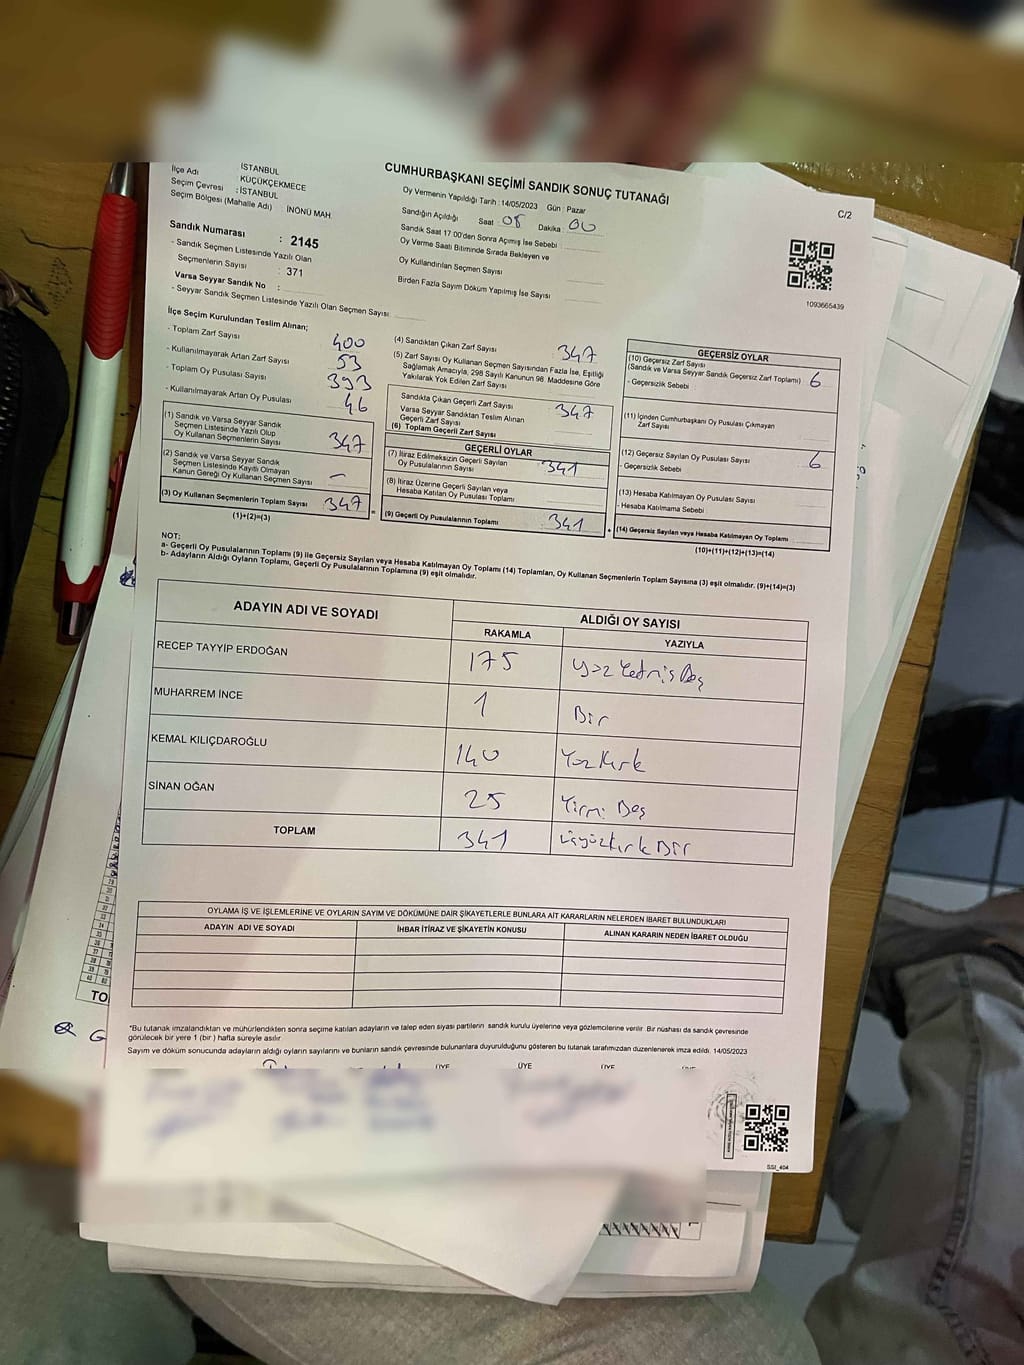 CUMHURBAŞKANI SEÇİMİ SANDIK SONUÇ TUTANAĞI
C/2
İlçe Adı
Seçim Çevresi
Seçim Bölgesi (Mahalle Adı)
İSTANBUL
KÜÇÜKÇEKMECE
: İSTANBUL
: İNÖNÜ MAH.
Sandık Numarası : 2145
- Sandık Seçmen Listesinde Yazılı Olan
Seçmenlerin Sayısı : 371
Varsa Seyyar Sandık No :
- Seyyar Sandık Seçmen Listesinde Yazılı Olan Seçmen Sayısı:
Oy Vermenin Yapıldığı Tarih : 14/05/2023 Gün : Pazar
Sandığın Açıldığı Saat 08 Dakika : 00
Sandık Saat 17.00'den Sonra Açmış İse Sebebi
Oy Verme Saati Bitiminde Sırada Bekleyen ve
Oy Kullandırılan Seçmen Sayısı
Birden Fazla Sayım Döküm Yapılmış İse Sayısı
1093665439
İlçe Seçim Kurulundan Teslim Alınan;
- Toplam Zarf Sayısı 400
- Kullanılmayarak Artan Zarf Sayısı 53
- Toplam Oy Pusulası Sayısı 393
- Kullanılmayarak Artan Oy Pusulası 46
(1) Sandık ve Varsa Seyyar Sandık
Seçmen Listesinde Yazılı Olup
Oy Kullanan Seçmenlerin Sayısı 347
(2) Sandık ve Varsa Seyyar Sandık
Seçmen Listesinde Kayıtlı Olmayan
Kanun Gereği Oy Kullanan Seçmen Sayısı –
(3) Oy Kullanan Seçmenlerin Toplam Sayısı 347
(1)+(2)=(3)
(4) Sandıktan Çıkan Zarf Sayısı : 347
(5) Zarf Sayısı Oy Kullanan Seçmen Sayısından Fazla İse, Eşitliği
Sağlamak Amacıyla, 298 Sayılı Kanunun 98. Maddesine Göre
Yakılarak Yok Edilen Zarf Sayısı
Sandıkta Çıkan Geçerli Zarf Sayısı : 347
Varsa Seyyar Sandıktan Teslim Alınan
Geçerli Zarf Sayısı
(6) Toplam Geçerli Zarf Sayısı
GEÇERLİ OYLAR
(7) İtiraz Edilmeksizin Geçerli Sayılan
Oy Pusulalarının Sayısı : 341
(8) İtiraz Üzerine Geçerli Sayılan veya
Hesaba Katılan Oy Pusulası Toplamı
=
(9) Geçerli Oy Pusulalarının Toplamı 341
+
GEÇERSİZ OYLAR
(10) Geçersiz Zarf Sayısı
(Sandık ve Varsa Seyyar Sandık Geçersiz Zarf Toplamı) 6
- Geçersizlik Sebebi
(11) İçinden Cumhurbaşkanı Oy Pusulası Çıkmayan
Zarf Sayısı
(12) Geçersiz Sayılan Oy Pusulası Sayısı 6
- Geçersizlik Sebebi
(13) Hesaba Katılmayan Oy Pusulası Sayısı
- Hesaba Katılmama Sebebi
(14) Geçersiz Sayılan veya Hesaba Katılmayan Oy Toplamı
(10)+(11)+(12)+(13)=(14)
NOT:
a- Geçerli Oy Pusulalarının Toplamı (9) ile Geçersiz Sayılan veya Hesaba Katılmayan Oy Toplamı (14) Toplamları, Oy Kullanan Seçmenlerin Toplam Sayısına (3) eşit olmalıdır. (9)+(14)=(3)
b- Adayların Aldığı Oyların Toplamı, Geçerli Oy Pusulalarının Toplamına (9) eşit olmalıdır.
ADAYIN ADI VE SOYADI
ALDIĞI OY SAYISI
RAKAMLA YAZIYLA
RECEP TAYYİP ERDOĞAN 175 Yüz Yetmiş Beş
MUHARREM İNCE 1 Bir
KEMAL KILIÇDAROĞLU 140 Yüz Kırk
SİNAN OĞAN 25 Yirmi Beş
TOPLAM 341 Üçyüzkırk Bir
OYLAMA İŞ VE İŞLEMLERİNE VE OYLARIN SAYIM VE DÖKÜMÜNE DAİR ŞİKAYETLERLE BUNLARA AİT KARARLARIN NELERDEN İBARET BULUNDUKLARI
ADAYIN ADI VE SOYADI İHBAR İTİRAZ VE ŞİKAYETİN KONUSU ALINAN KARARIN NEDEN İBARET OLDUĞU
*Bu tutanak imzalandıktan ve mühürlendikten sonra seçime katılan adayların ve talep eden siyasi partilerin sandık kurulu üyelerine veya gözlemcilerine verilir. Bir nüshası da sandık çevresinde
görülecek bir yere 1 (bir) hafta süreyle asılır.
Sayım ve döküm sonucunda adayların aldığı oyların sayılarını ve bunların sandık çevresinde bulunanlara duyurulduğunu gösteren bu tutanak tarafımızdan düzenlenerek imza edildi. 14/05/2023
ÜYE ÜYE ÜYE
TO
G
SSI_404